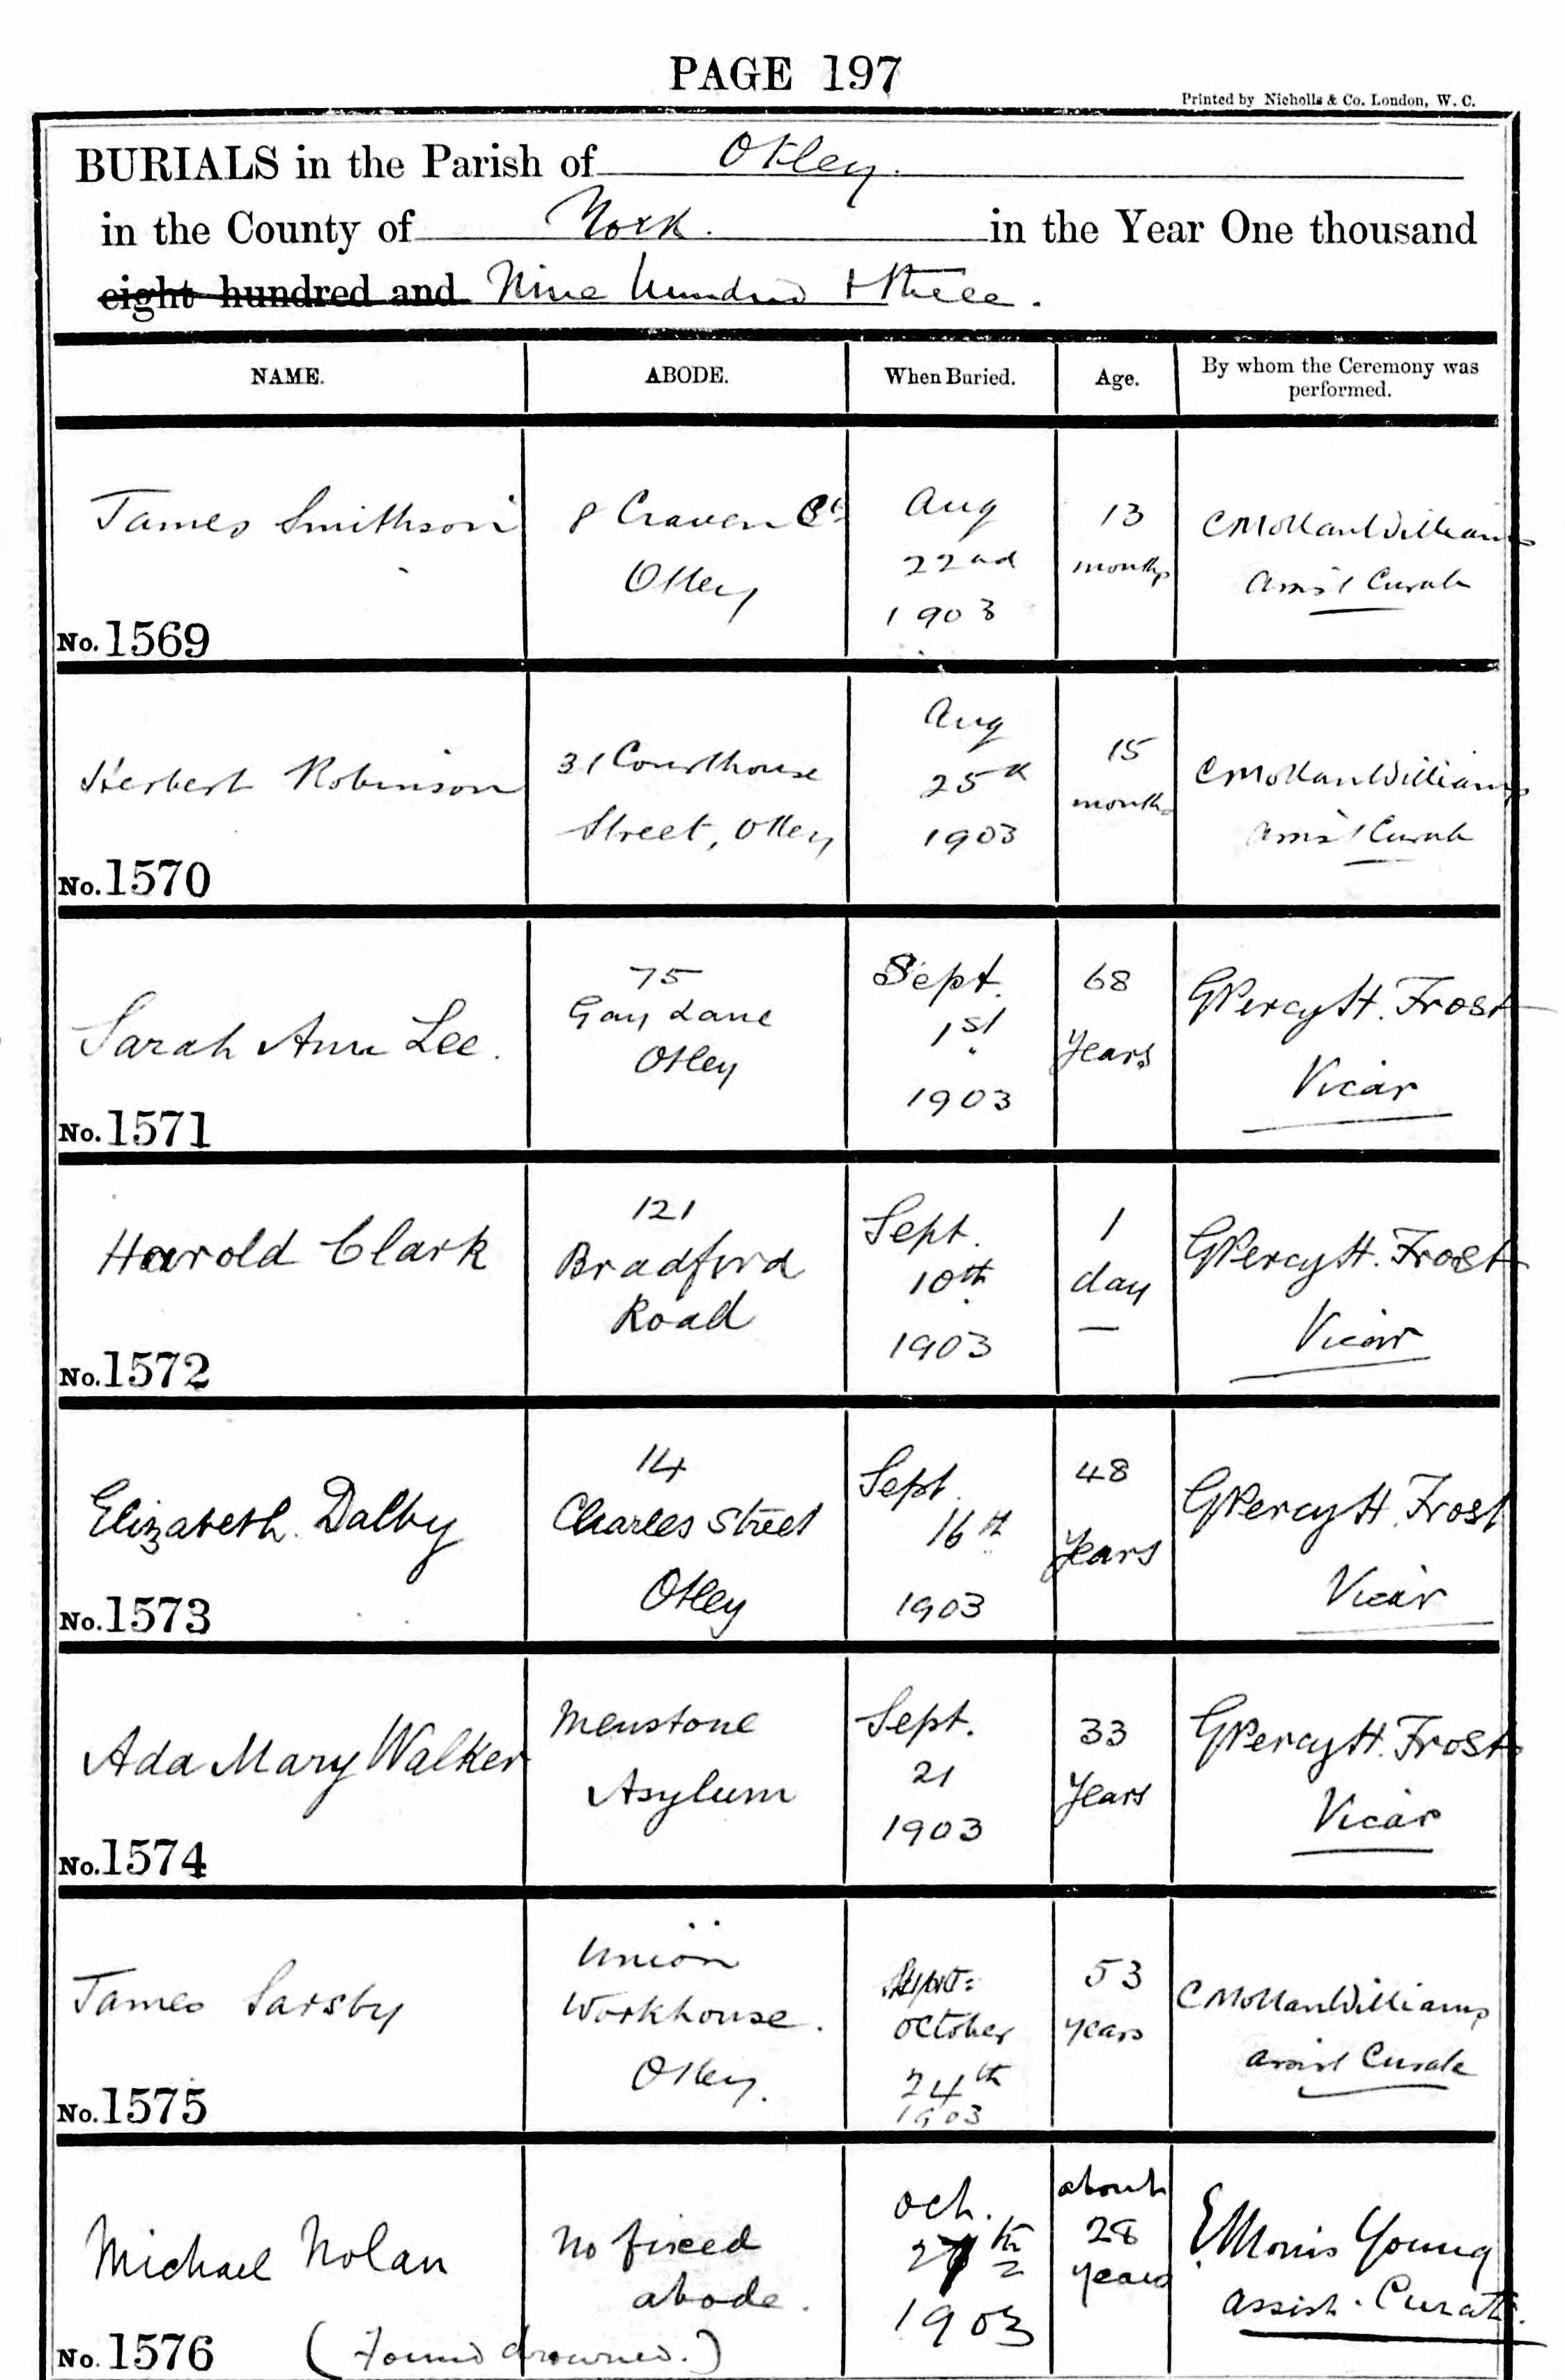 PAGE 197
Printed by Nicholls & Co. London, W. C.
BURIALS in the Parish of Otley.
in the County of York. in the Year One thousand
eight hundred and Nine hundred & three.
NAME.
ABODE.
When Buried.
Age.
By whom the Ceremony was
performed.
James Smithson
No. 1569
8 Craven Ct
Otley
Aug
22nd
1903
13
months
C Mollan Williams
Assist Curate
Herbert Robinson
No. 1570
31 Courthouse
Street, Otley
Aug
25th
1903
15
months
C Mollan Williams
Assist Curate
Sarah Ann Lee.
No. 1571
75
Gay Lane
Otley
Sept.
1st
1903
68
Years
G Percy H. Frost
Vicar
Harold Clark
No. 1572
121
Bradford
Road
Sept.
10th
1903
1
day
G Percy H. Frost
Vicar
Elizabeth Dalby
No. 1573
14
Charles Street
Otley
Sept.
16th
1903
48
Years
G Percy H. Frost
Vicar
Ada Mary Walker
No. 1574
Menstone
Asylum
Sept.
21
1903
33
Years
G Percy H. Frost
Vicar
James Sarsby
No. 1575
Union
Workhouse.
Otley.
October
24th
1903
53
years
C Mollan Williams
Assist Curate
Michael Nolan
No. 1576 (Found drowned.)
No fixed
abode.
Oct.
1903
about
28
years
E Morris Young
Assist. Curate.